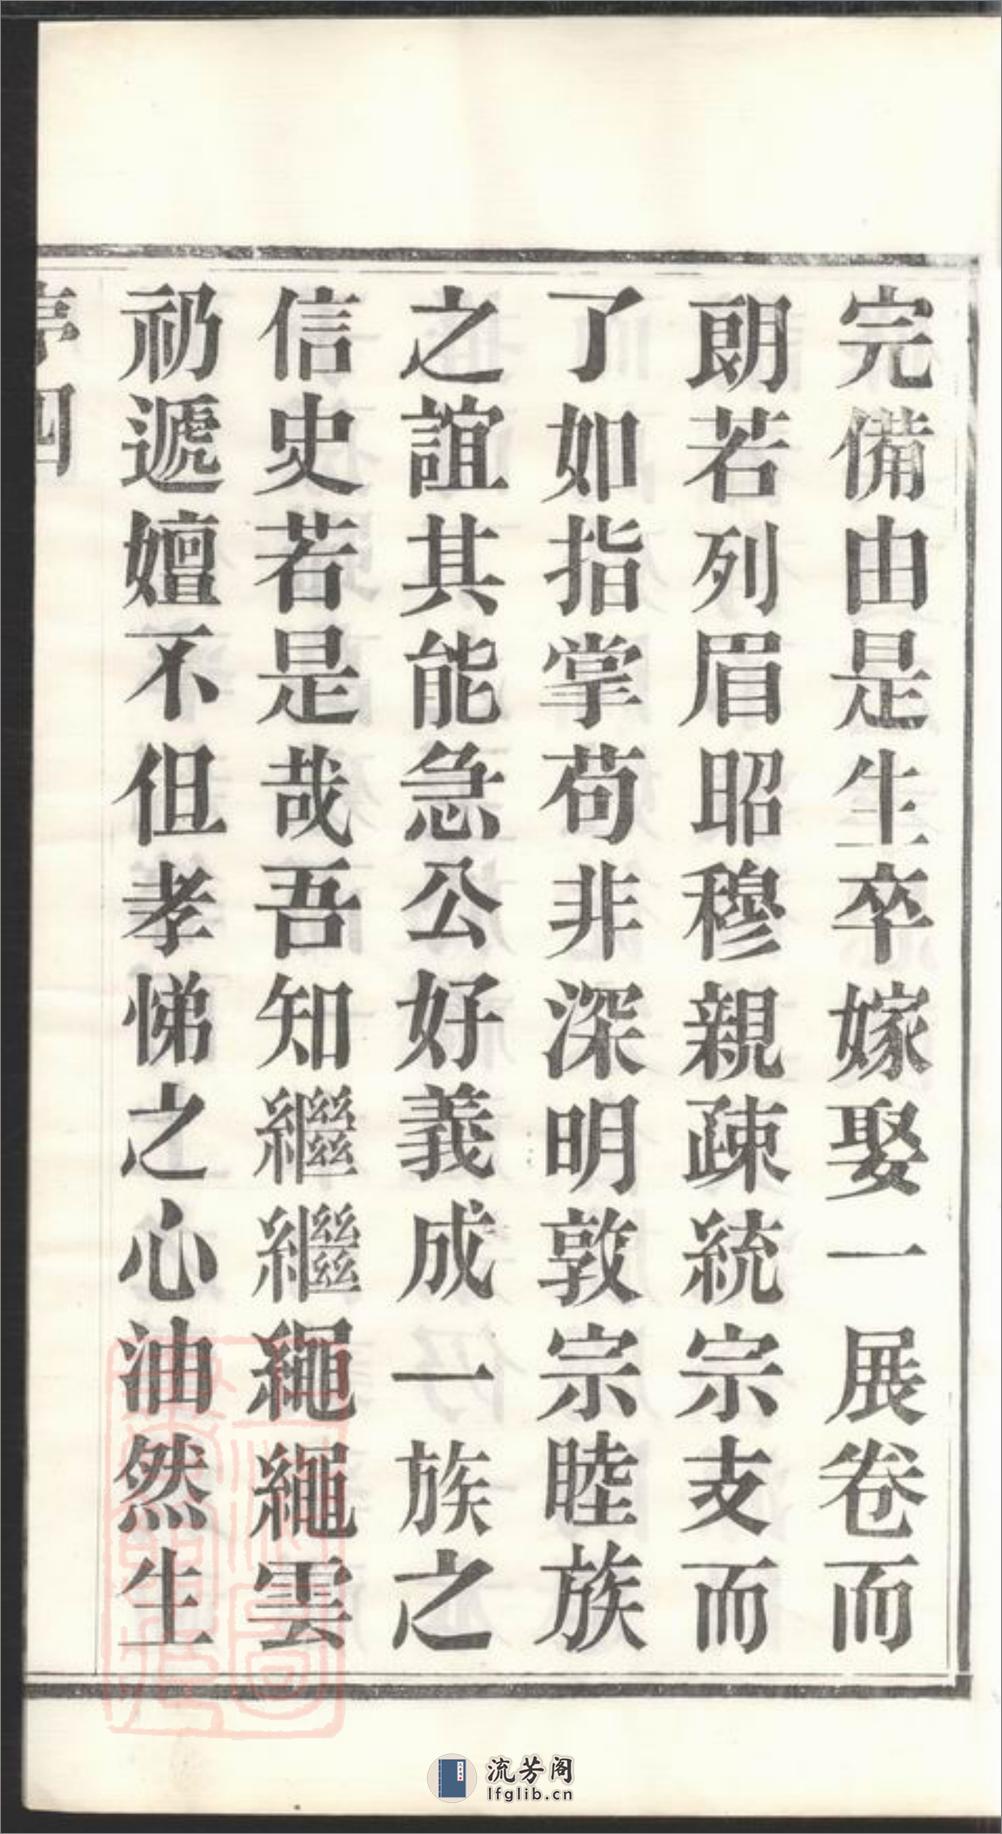 完備由是生卒嫁娶一展卷而
朗若列眉昭穆親疎統宗支而
了如指掌苟非深明敦宗睦族
之誼其能急公好義成一族之
信史若是哉吾知繼繼繩繩雲
礽遞嬗不但孝悌之心油然生
序四
流芳阁
lfglib.cn